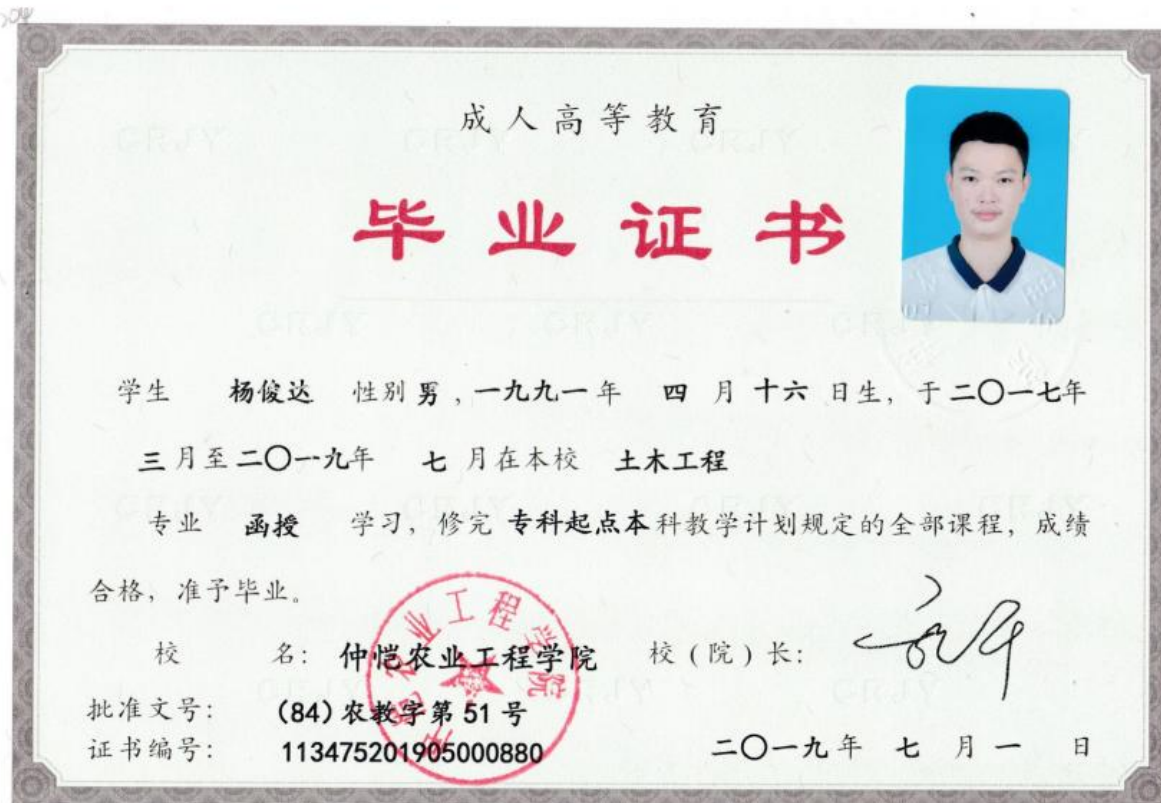 成人高等教育
毕业证书
学生 杨俊达 性别 男，一九九一年 四 月 十六 日生，于二〇一七年
三月至二〇一九年 七 月在本校 土木工程
专业 函授 学习，修完 专科起点本科教学计划规定的全部课程，成绩
合格，准予毕业。
校 名：仲恺农业工程学院 校（院）长：
批准文号：(84)农教字第 51 号
证书编号：113475201905000880
二〇一九年 七 月 一 日
仲恺农业工程学院